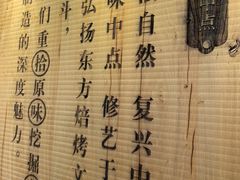 自然 复兴中
味中点 修艺于
弘扬东方焙烤文
斗，
们重拾原味挖掘
制造的深度魅力。
中点